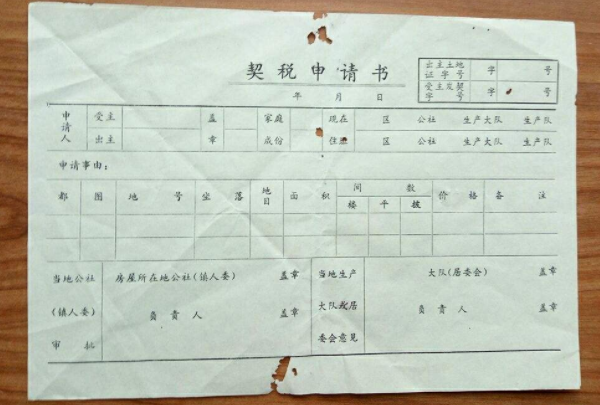 契税申请书
年 月 日
出主土地证字号 字 号
受主发契字号 字 号
申请人 受主 盖章 家庭成份 现在住 区 公社 生产大队 生产队
出主 区 公社 生产大队 生产队
申请事由：
都 图 地号 坐落 地目 面积 间数 价格 备注
楼 平 披
当地公社(镇人委)审批 房屋所在地公社(镇人委) 盖章 当地生产大队或居委会意见 大队(居委会) 盖章
负责人 盖章 负责人 盖章